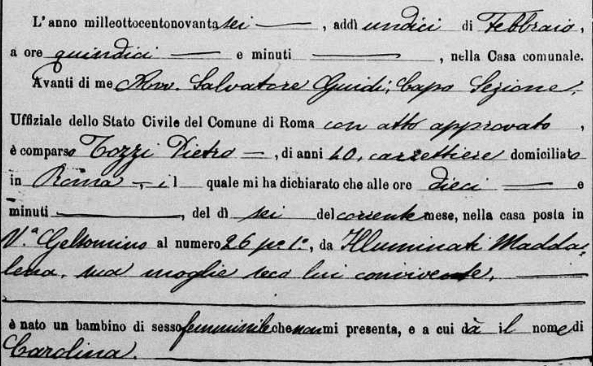 L'anno milleottocentonovantasei —, addì undici di Febbraio,
a ore quindici — e minuti —, nella Casa comunale.
Avanti di me Rom. Salvatore Guidi, Capo Sezione,
Uffiziale dello Stato Civile del Comune di Roma con atto approvato,
è comparso Tozzi Pietro —, di anni 40, carrettiere domiciliato
in Roma —, il quale mi ha dichiarato che alle ore dieci — e
minuti —, del dì sei del corrente mese, nella casa posta in
V.ª Gelsomino al numero 26 p.º 1º, da Illuminati Madda-
lena, sua moglie seco lui convivente,
è nato un bambino di sesso femminile che non mi presenta, e a cui dà il nome di
Carolina.